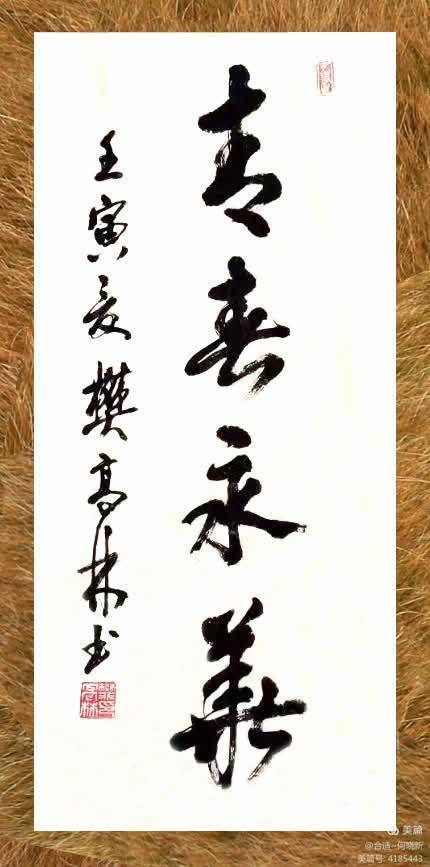 青春永華
壬寅夏樊高林书
美篇
@合适~何晓新
美篇号: 4185443